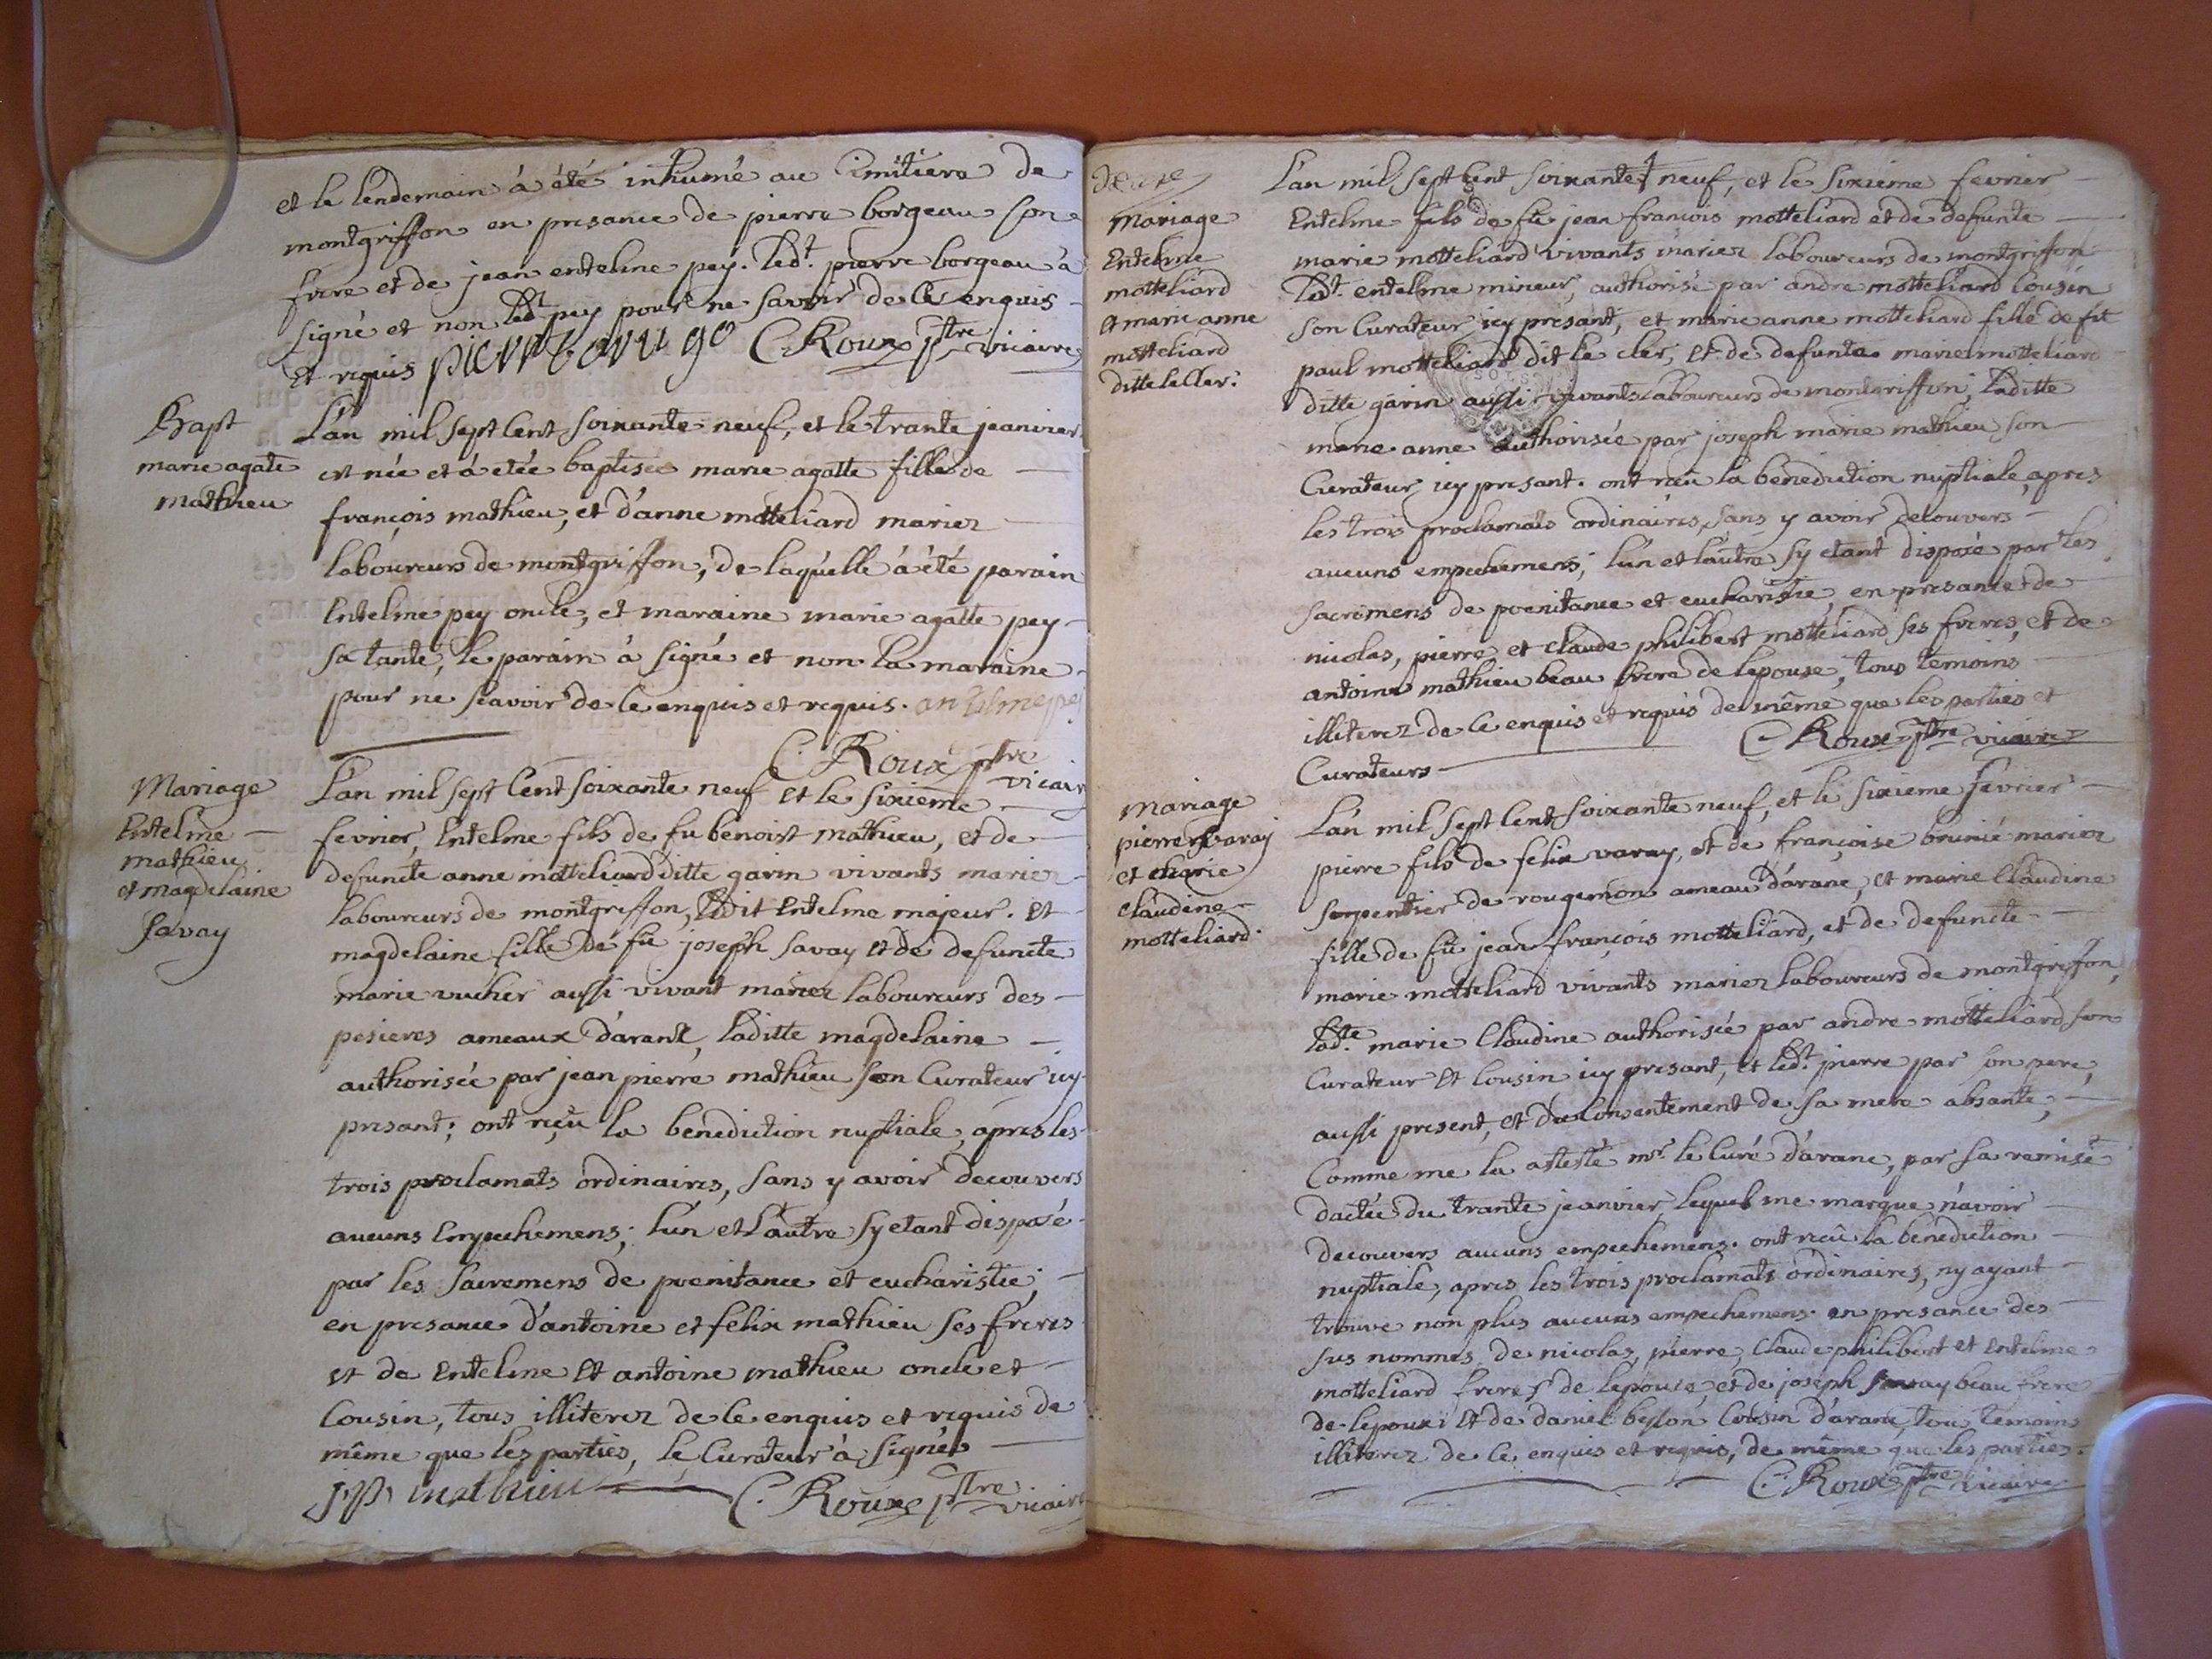 et le lendemain à été inhumé au Cimitiere de
montgriffon en presance de pierre borgeau son
frere et de jean entelme pey. Led.t pierre borgeau à
signé et non led.t pey pour ne savoir de ce enquis
et requis C. Roux ptre vicaire
Bapt
marie agate
mathieu
L'an mil sept Cent soixante neuf, et le trante jeanvier
est née et à etée baptisée marie agatte fille de
françois mathieu, et d'anne motteliard mariez
laboureurs de montgriffon, de laquelle à été parain
Entelme pey oncle, et maraine marie agatte pey
sa tante, le parain à signé et non la maraine
pour ne scavoir de ce enquis et requis. antelme pei
C. Roux ptre
vicaire
Mariage
Entelme
mathieu
et magdelaine
Savay
L'an mil sept Cent soixante neuf et le sixieme
fevrier, Entelme fils de fu benoist mathieu, et de
defuncte anne motteliard ditte garin vivants mariez
laboureurs de montgriffon, ledit Entelme majeur. et
magdelaine fille de fû joseph savay et de defuncte
marie vucher aussi vivant mariez laboureurs des
pesieres ameaux d'arant, laditte magdelaine
authorisée par jean pierre mathieu son Curateur icy
presant; ont reçu la benediction nuptiale, apres les
trois proclamats ordinaires, sans y avoir decouvers
aucuns Empechemens; l'un et l'autre sy etant disposé
par les sacremens de poenitance et eucharistie;
en presance d'antoine et felix mathieu ses freres
et de Entelme et antoine mathieu oncle et
Cousin, tous illiterez de ce enquis et requis de
même que les parties, le Curateur à signé
J P mathieu C. Roux ptre vicaire
Mariage
Entelme
motteliard
et marie anne
motteliard
ditte le cler.
L'an mil sept Cent soixante neuf, et le sixieme fevrier
Entelme fils de fû jean francois motteliard et de defunte
marie motteliard vivants mariez laboureurs de montgriffon
led.t entelme mineur, authorisé par andre motteliard Cousin
son Curateur icy presant, et marie anne motteliard fille de fû
paul motteliard dit le cler, et de defunta marie motteliard
ditte garin aussi vivants laboureurs de montgriffon, laditte
marie anne authorisée par joseph marie mathieu son
Curateur icy presant. ont reçu la benediction nuptiale, apres
les trois proclamats ordinaires, sans y avoir decouvers
aucuns empechemens; l'un et l'autre sy etant disposé par les
sacremens de poenitance et eucharistie, en presance de
nicolas, pierre et claude philibert motteliard ses freres, et de
antoine mathieu beau frere de lepouse, tous temoins
illiterez de ce enquis et requis de même que les parties et
Curateurs C. Roux ptre vicaire
Mariage
pierre Varay
et Marie
claudine
motteliard.
L'an mil sept Cent soixante neuf, et le sixieme fevrier
pierre fils de felix varay, et de françoise brunié mariez
serpentier de rougemon ameau d'aranc, et marie Claudine
fille de fû jean françois motteliard, et de defuncte
marie motteliard vivants mariez laboureurs de montgriffon,
lad.te marie Claudine authorisée par andre motteliard son
Curateur et Cousin icy presant, et led.t pierre par son pere,
aussi present, et du Consentement de sa mere absante,
Comme me la atesté m.r le Curé d'aranc, par sa remise
dactée du trante jeanvier lequel me marque n'avoir
decouvers aucuns empechemens. ont reçu la benediction
nuptiale, apres les trois proclamats ordinaires, ny ayant
trouvé non plus aucuns empechemens. en presance des
sus nommes de nicolas, pierre, Claude philibert et Entelme
motteliard freres de lepouse, et de joseph beau frere
de lepoux; et de daniel Cousin d'aranc, tous temoins
illiterez de ce enquis et requis, de même que les parties.
C. Roux ptre vicaire